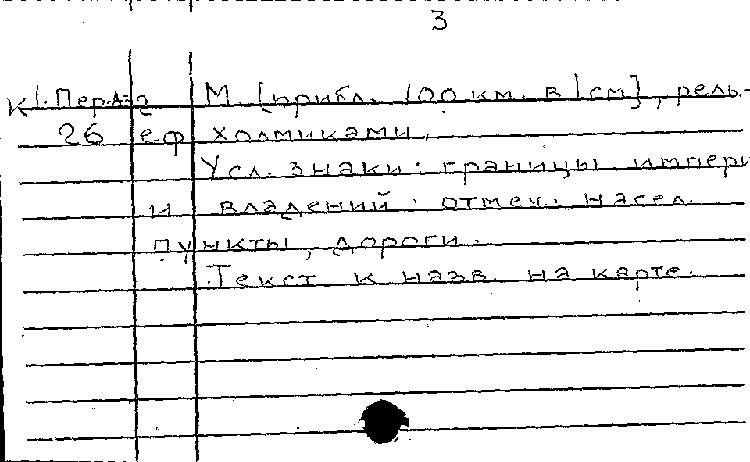 3
К1.Пер.Аз-2 М. [прибл. 100 км. в 1 см], рель-
26 еф холмиками.
Усл. знаки: границы импери
и владений; отмеч. насел.
пункты, дороги.
Текст к назв. на карте.